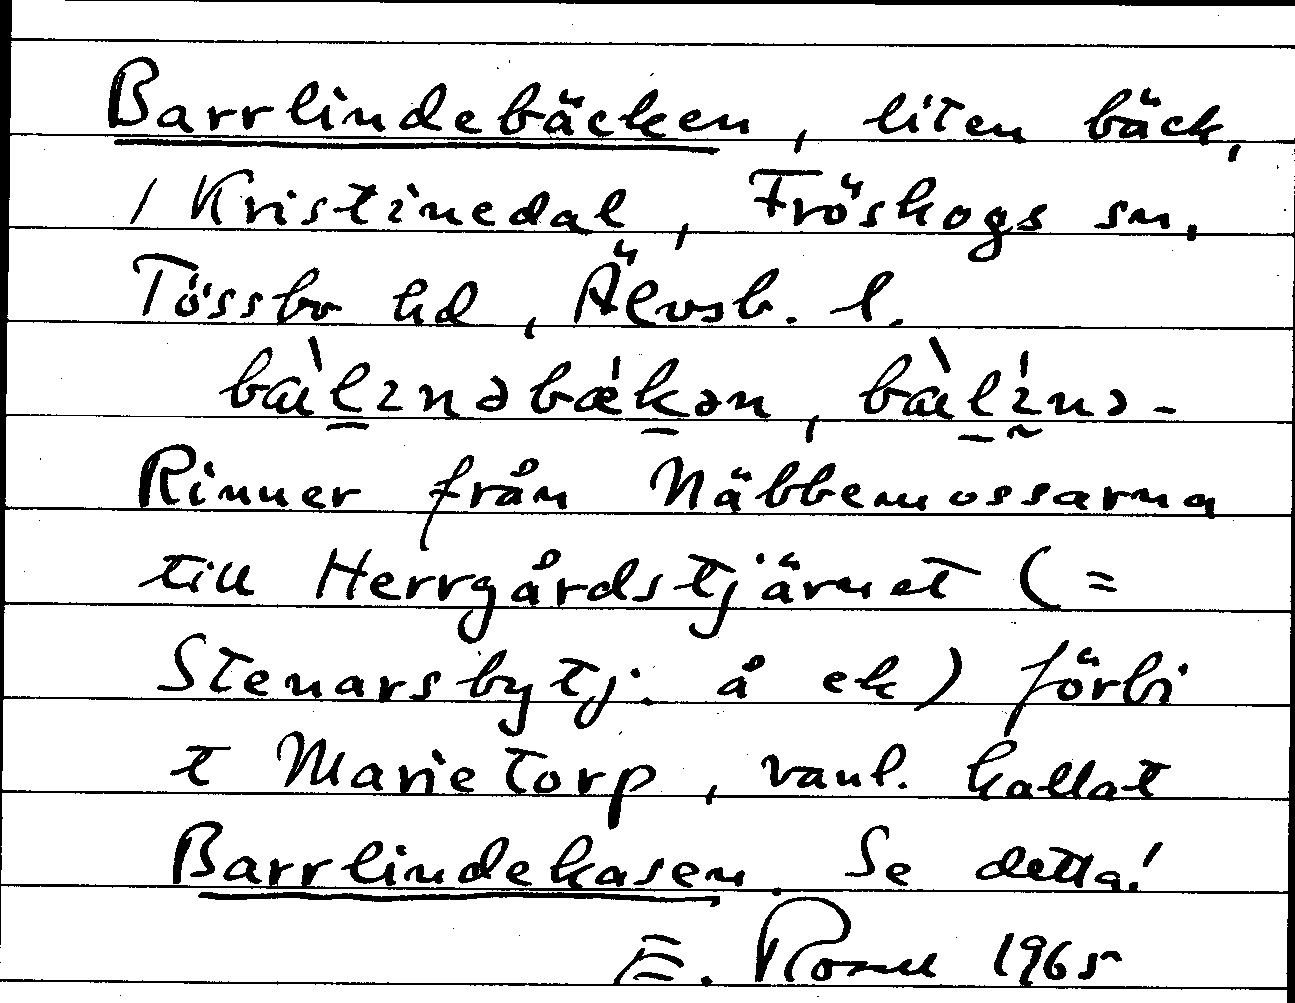 Barrlindebäcken, liten bäck,
/ Kristinedal, Fröskogs sn,
Tössbo hd, Älvsb. l.
bàlınəbǽkən, bàlı́nə-
Rinner från Näbbemossarna
till Herrgårdstjärnet (=
Stenarsbytj. å ek) förbi
t Marietorp, vanl. kallat
Barrlindekasen. Se detta!
E. 1965